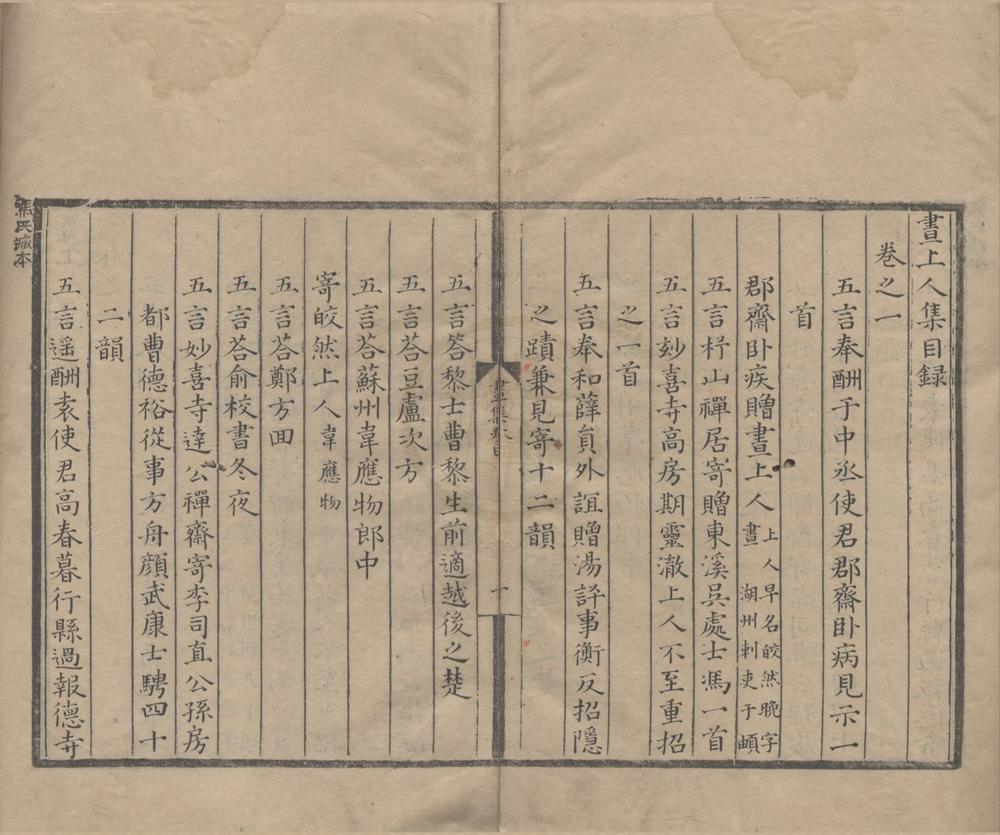 晝上人集目録
卷之一
五言奉酬于中丞使君郡齋臥病見示一
首
郡齋臥疾贈晝上人上人早名皎然晩字晝湖州刺吏于頔
五言杼山禪居寄贈東溪吳處士馮一首
五言玅喜寺高房期靈澈上人不至重招
之一首
五言奉和薛員外誼贈湯評事衡反招隱
之蹟兼見寄十二韻
晝集卷目
一
五言答黎士曹黎生前適越後之楚
五言荅豆盧次方
五言荅蘇州韋應物郎中
寄皎然上人韋應物
五言荅鄭方囬
五言荅俞校書冬夜
五言妙喜寺逹公禪齋寄李司直公孫房
都曹德裕從事方舟顔武康士騁四十
二韻
五言遥酬袁使君高春暮行縣過報德寺
馬氏城本